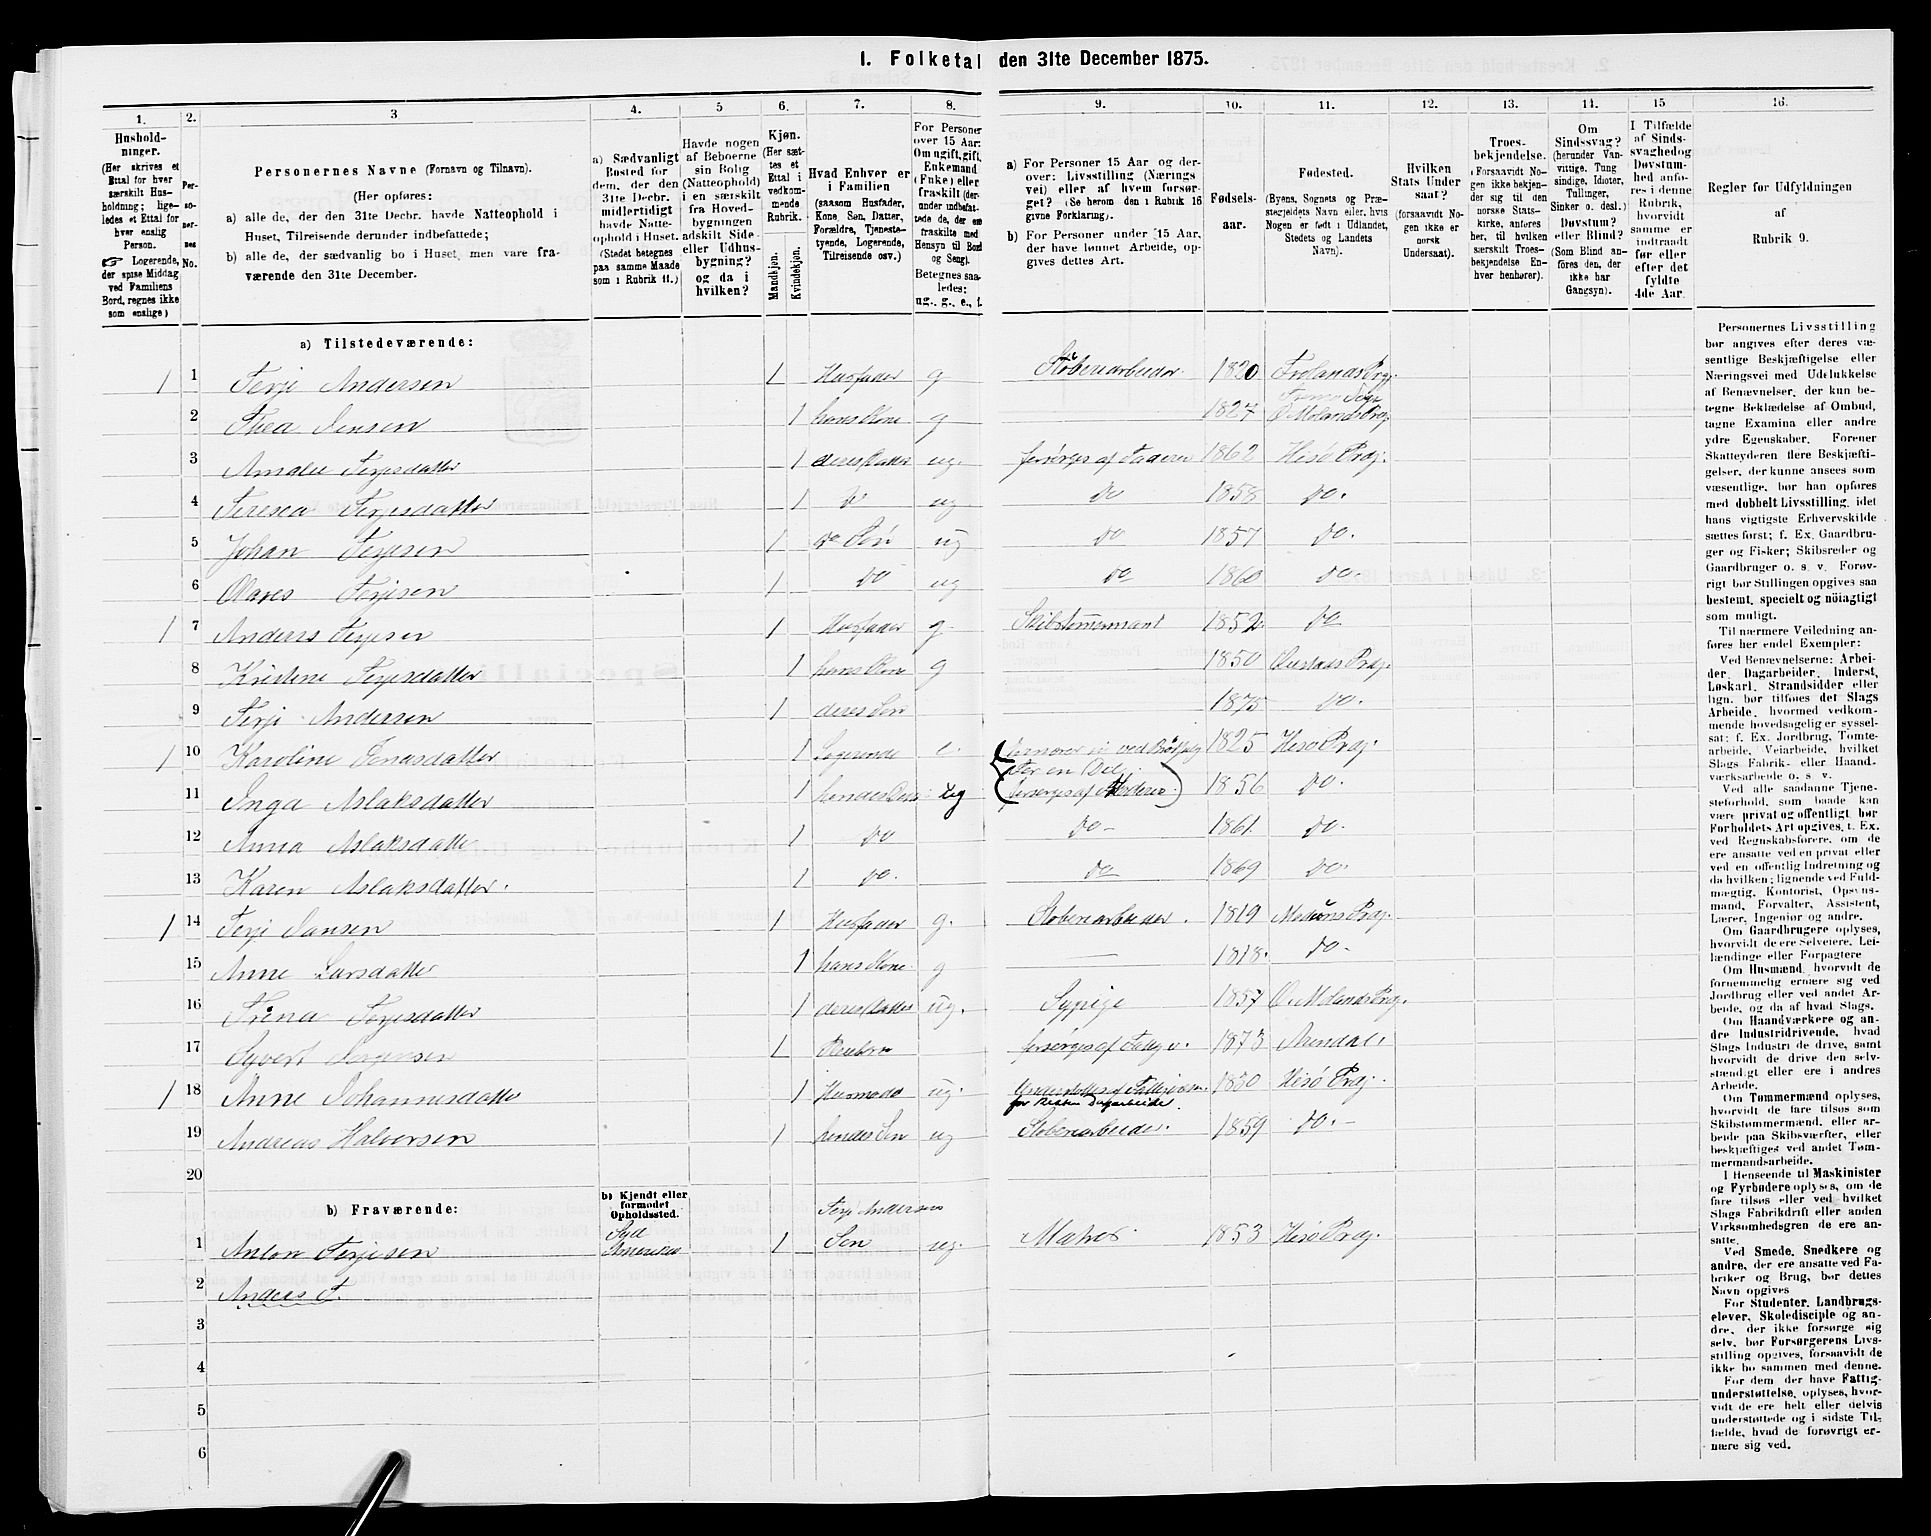 1. Folketal den 31te December 1875.
1. 2. 3 4. 5 6. 7. 8. 9. 10. 11. 12. 13. 14. 15 16.
Hushold-
ninger.
(Her skrives et
Ettal for hver
særskilt Hus-
holdning; lige-
ledes et Ettal for
hver enslig
Person.
☞ Logerende,
der spise Middag
ved Familiens
Bord, regnes ikke
som enslige)
Per-
so-
ner-
nes
No.
Personernes Navne (Fornavn og Tilnavn).
(Her opføres:
a) alle de, der den 31te Decbr. havde Natteophold i
Huset, Tilreisende derunder indbefattede;
b) alle de, der sædvanlig bo i Huset, men vare fra-
værende den 31te December.
a) Sædvanligt
Bosted for
dem, der den
31te Decbr.
midlertidigt
havde Natte-
ophold i Huset.
(Stedet betegnes
paa samme Maade
som i Rubrik 11.)
Havde nogen
af Beboerne
sin Bolig
(Natteophold)
i en særskilt
fra Hoved-
bygningen
adskilt Side-
eller Udhus-
bygning?
og da i
hvilken?
Kjøn.
(Her sæt-
tes et
Ettal i
vedkom-
mende
Rubrik.
Mandkjøn.
Kvindekjøn.
Hvad Enhver er
i Familien
(saasom Husfader,
Kone, Søn, Datter,
Forældre, Tjeneste-
tyende, Logerende,
Tilreisende osv.)
For Personer
over 15 Aar:
Om ugift, gift,
Enkemand
(Enke) eller
fraskilt (der-
under indbefat-
tede de, der ere
fraskilte med
Hensyn til Bord
og Seng).
Betegnes saa-
ledes:
ug., g., e., f.
a) For Personer 15 Aar og der-
over: Livsstilling (Nærings-
vei) eller af hvem forsør-
get? (Se herom den i Rubrik 16
givne Forklaring).
b) For Personer under 15 Aar,
der have lønnet Arbeide, op-
gives dettes Art.
Fødsels-
aar.
Fødested.
(Byens, Sognets og Præ-
stegjeldets Navn eller, hvis
Nogen er født i Udlandet,
Stedets og Landets
Navn).
Hvilken
Stats Under-
saat?
(forsaavidt No-
gen ikke er
norsk
Undersaat).
Troes-
bekjendelse.
(Forsaavidt No-
gen ikke bekjen-
der sig til den
norske Stats-
kirke, anføres
her, til hvilken
særskilt Troes-
bekjendelse En-
hver henhører).
Om
Sindssvag?
(herunder Van-
vittige, Tung-
sindige, Idioter,
Tullinger,
Sinker o. desl.)
Døvstum?
eller Blind?
(Som Blind an-
føres den, der
ikke har
Gangsyn).
I Tilfælde
af Sinds-
svaghed og
Døvstum-
hed anfø-
res i denne
Rubrik,
hvorvidt
samme er
indtraadt
før eller
efter det
fyldte
4de Aar.
Regler for Udfyldningen
af
Rubrik 9.
a) Tilstedeværende:
1 1 Terje Andersen 1 Husfader g Støberiarbeider 1820 Frolands Prgj.
2 Thea Jensen 1 hans Kone g 1827 Ø. Molands Prgj
3 Amalie Terjesdatter 1 deres Datter ug. forsørges af Faderen 1862 Hisø Prgj.
4 Teresea Terjesdatter 1 do ug do 1858 do.
5 Johan Terjesen 1 do Søn ug do 1857 do.
6 Olaves Terjesen 1 do ug do 1860 do.
1 7 Anders Terjesen 1 Husfader g. Skibstømmermand 1852 do
8 Kristine Terjesdatter 1 hans Kone g 1850 Øiestads Prgj.
9 Terje Andersen 1 deres Søn 1875 do.
1 10 Karoline Jensdatter 1 Logerende e. 1825 Hisø Prgj.
For en Del
11 Inga Aslaksdatter 1 hendes Datter ug forsørges af Moderen 1856 do.
12 Anna Aslaksdatter 1 do do - 1861 do.
13 Karen Aslaksdatter. 1 do. do 1869 do.
1 14 Terje Jansen 1 Husfader g. Støberiarbeider. 1819 Prgj.
15 Anne Larsdatter 1 hans Kone g 1818. do -
16 Trina Terjesdatter 1 deres Datter ug. Sypige 1857 Ø. Molands Prgj.
17 Syvert Jørgensen 1 Pleiebarn forsørges af Fattigv. 1873 Arendal.
1 18 Anne Johannesdatter 1 Husmoder ug. Understøttes af Fattigvæsen. 1830 Hisø Prgj.
for Resten Dagarbeide.
19 Andreas Halvorsen 1 hendes Søn ug Støberiarbeider. 1859 do. -
20
b) Fraværende:
b) Kjendt eller
formodet
Opholdssted.
Terje Andersens
1 Anton Terjesen Syd Amerika 1 Søn ug. Matros 1853 Hisø Prgj.
2 Anders T.
3
4
5
6
Personernes Livsstilling
bør angives efter deres væ-
sentlige Beskjæftigelse eller
Næringsvei med Udelukkelse
af Benævnelser, der kun be-
tegne Beklædelse af Ombud,
tagne Examina eller andre
ydre Egenskaber. Forener
Skatteyderen flere Beskjæfti-
gelser, der kunne ansees som
væsentlige, bør han opføres
med dobbelt Livsstilling, idet
hans vigtigste Erhvervskilde
sættes først; f. Ex. Gaardbru-
ger og Fisker; Skibsreder og
Gaardbruger o. s. v. Forøv-
rigt bør Stillingen opgives saa
bestemt, specielt og nöiagtigt
som muligt.
Til nærmere Veiledning an-
føres her endel Exempler:
Ved Benævnelserne: Arbei-
der, Dagarbeider, Inderst,
Løskarl, Strandsidder eller
lign. bør tilføies det Slags
Arbeide, hvormed vedkom-
mende hovedsagelig er syssel-
sat; f. Ex. Jordbrug, Tomte-
arbeide, Veiarbeide, hvilket
Slags Fabrik- eller Haand-
værksarbeide o. s. v.
Ved alle saadanne Tjene-
steforhold, som baade kan
være privat og offentligt, bør
Forholdets Art opgives, t. Ex.
ved Regnskabsførere, om de
ere ansatte ved en privat eller
ved en offentlig Indretning og
da hvilken; lignende ved Fuld-
mægtig, Kontorist, Opsyns-
mand, Forvalter, Assistent,
Lærer, Ingeniør og andre.
Om Gaardbrugere oplyses,
hvorvidt de ere Selveiere, Lei-
lændinge eller Forpagtere
Om Husmænd, hvorvidt de
fornemmelig ernære sig ved
Jordbrug eller ved andet Ar-
beide, og da af hvad Slags.
Om Haandværkere og an-
dre Industridrivende, hvad
Slags Industri de drive, samt
hvorvidt de drive den selv-
stændigt eller ere i andres
Arbeide.
Om Tømmermænd oplyses,
hvorvidt de fare tilsøs som
Skibstømmermænd, eller ar-
beide paa Skibsværfter, eller
beskjæftiges ved andet Tøm-
mermandsarbeide.
I Henseende til Maskinister
og Fyrbødere oplyses, om de
fare tilsøs eller ved hvilket
Slags Fabrikdrift eller anden
Virksomhedsgren de ere an-
satte.
Ved Smede, Snedkere og
andre, der ere ansatte ved Fa-
briker og Brug, bør dettes
Navn opgives
For Studenter, Landbrugs-
elever, Skoledisciple og an-
dre, der ikke forsørge sig
selv, bør Forsørgerens Livs-
stilling opgives, forsaavidt de
ikke bo sammen med denne.
For dem, der have Fattig-
understøttelse, oplyses, hvor-
vidt de ere helt eller delvis
understøttede og i sidste Til-
fælde, hvad de forøvrigt er-
nære sig ved.